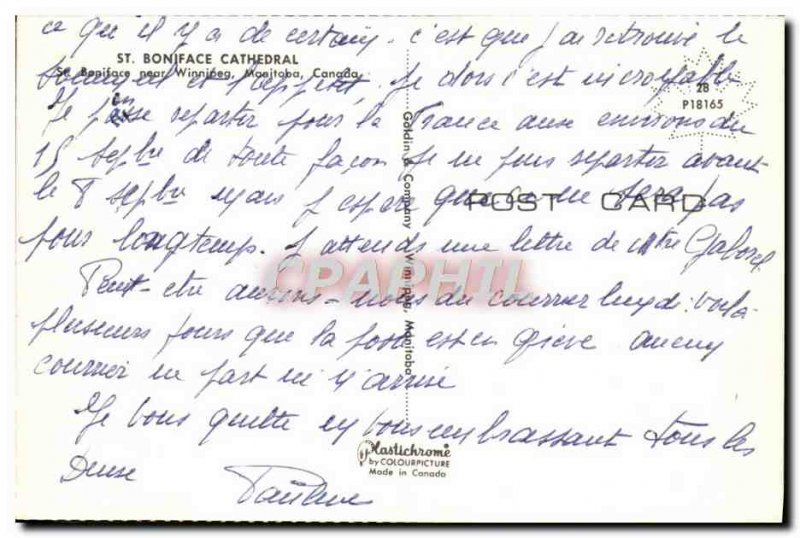 ce qu'il y a de certain, c'est que j'ai retrouvé le
ST. BONIFACE CATHEDRAL
St. Boniface near Winnipeg, Manitoba, Canada
sommeil et l'appétit, Je dors c'est incroyable
28
P18165
Je pense repartir pour la France aux environs du
15 Septbre de toute façon Je ne puis repartir avant
le 8 septbre mais j'espère que ce ne sera pas
POST CARD
pour longtemps. J'attends une lettre de Gaborel
CPAPHIL
Peut-être aurons-nous du courrier lundi: voilà
plusieurs jours que la poste est en grève aucun
courrier ne part ni n'arrive
Je vous quitte en vous embrassant tous les
deux
Pauline
Goldin & Company Winnipeg, Manitoba
Plastichrome
by COLOURPICTURE
Made in Canada